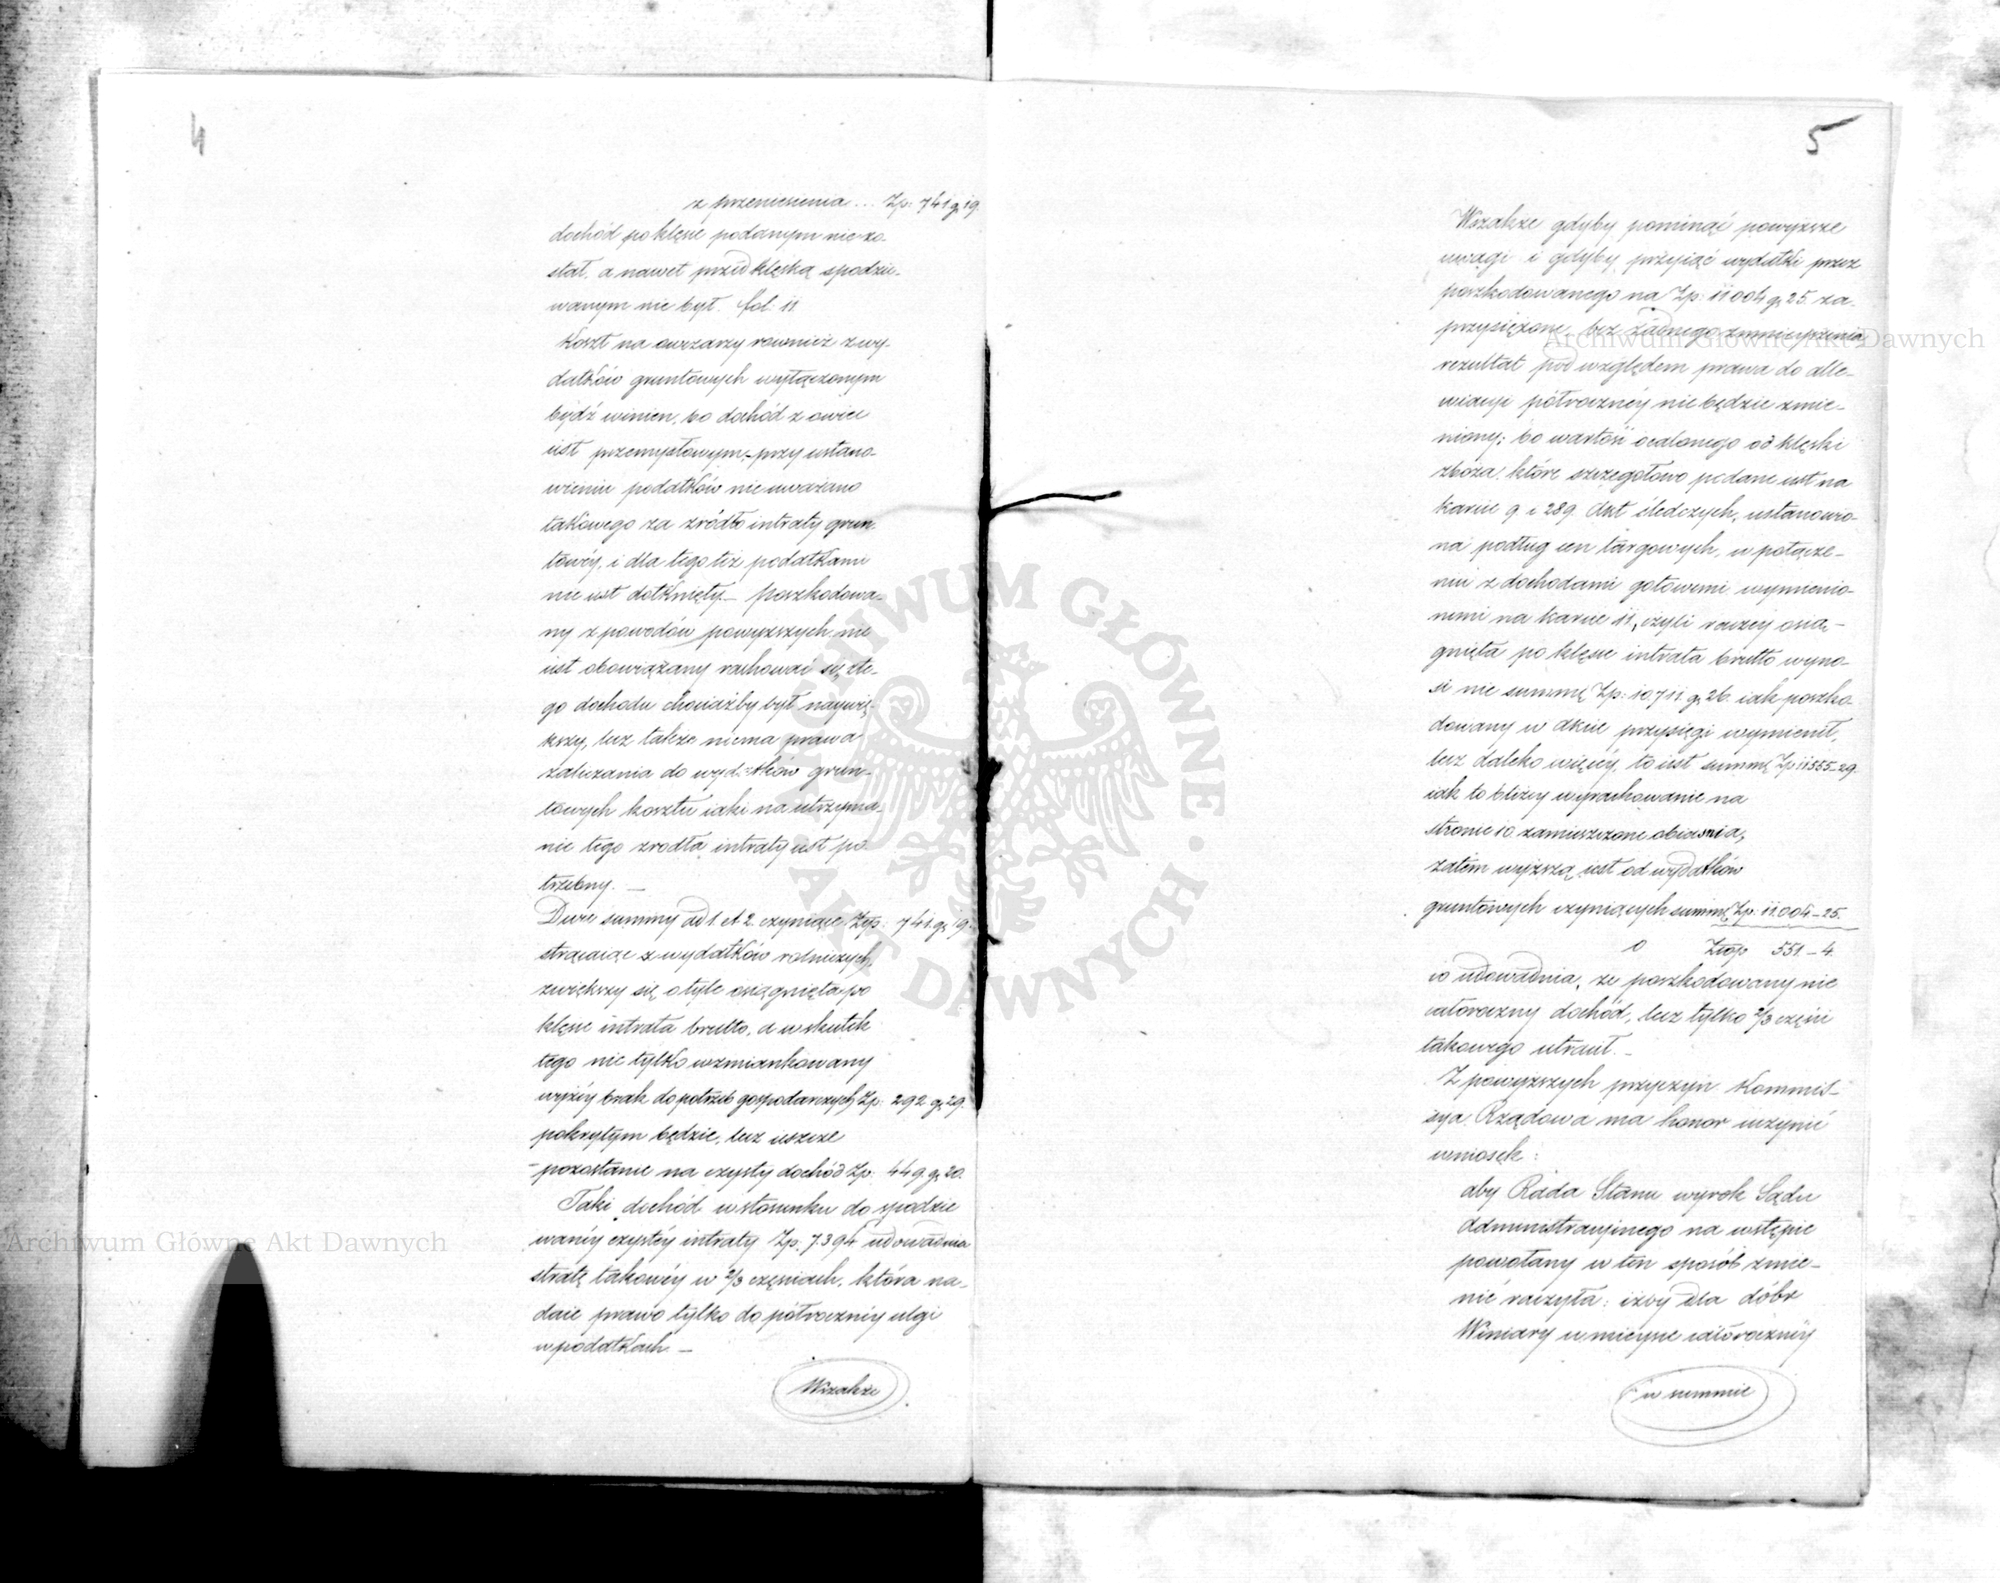 4
z przeniesienia ... Zp: 741 g 19.
dochód po klęsce podanym nie zo-
stał, a nawet przed klęską spodzie-
wanym nie był. fol: 11.
Koszt na owczarzy również z wy-
datków gruntowych wyłączonym
bydź winien, bo dochód z owiec
iest przemysłowym, przy ustano-
wieniu podatków nie uważano
takowego za źródło intraty grun
towéy, i dla tego też podatkami
nie iest dotknięty — poszkodowa-
ny z powodów powyższych nie
iest obowiązany rachować się z te-
go dochodu chociażby był naywię-
kszy, lecz także niema prawa
zaliczania do wydatków grun-
towych kosztu iaki na utrzyma-
nie tego źrodła intraty iest po
trzebny. —
Dwie summy ad 1. et 2. czyniące Złp: 741. g 19.
strącaiąc z wydatków rolniczych,
zwiększy się o tyle osiągnięta po
klęsce intrata brutto, a w skutek
tego nie tylko wzmiankowany
wyżéy brak do potrzeb gospodarczych Zp: 292 g 29.
pokrytym będzie, lecz ieszcze
- pozostanie na czysty dochód Zp: 449. g 20.
Taki dochód w stosunku do spodzie
wanéy czystéy intraty Zp: 7394 udowadnia
stratę takowéy w 2/3 częściach, która na-
daie prawo tylko do półrocznéy ulgi
w podatkach. —
Wszakże
5
Wszakże gdyby pominąć powyższe
uwagi i gdyby przyiąć wydatki przez
poszkodowanego na Zp: 11004 g 25. za-
przysiężone, bez żadnego zmnieyszenia
rezultat pod względem prawa do alle-
wiacyi półrocznéy nie będzie zmie-
niony; bo wartość ocalonego od klęski
zboża, które szczegółowo podane iest na
karcie 9 i 289. Akt śledczych, ustanowio-
na podług cen targowych, w połącze-
niu z dochodami gotowemi wymienio-
nemi na karcie 11, czyli raczey osią-
gnięta po klęsce intrata brutto wyno-
si nie summę Zp: 10711. g 26. iak poszko-
dowany w akcie przysięgi wymienił,
lecz daleko więcéy, to iest summę Zp 11555-29.
iak to bliższy wyrachowanie na
stronie 10 zamieszczone obiaśnia,
zatém wyższą iest od wydatków
gruntowych czyniących summę Zp: 11.004-25.
o Złop 551-4.
co udowadnia, że poszkodowany nie
całoroczny dochód, lecz tylko 2/3 części
takowego utracił. —
Z powyższych przyczyn Kommis-
sya Rządowa ma honor uczynić
wniosek:
aby Rada Stanu wyrok Sądu
Administracyinego na wstępie
powołany w ten sposób zmie-
nić raczyła: iżby dla dóbr
Winiary w mieysce całorocznéy
w summie
Archiwum Główne Akt Dawnych
Archiwum Główne Akt Dawnych
ARCHIWUM GŁÓWNE · AKT DAWNYCH ·